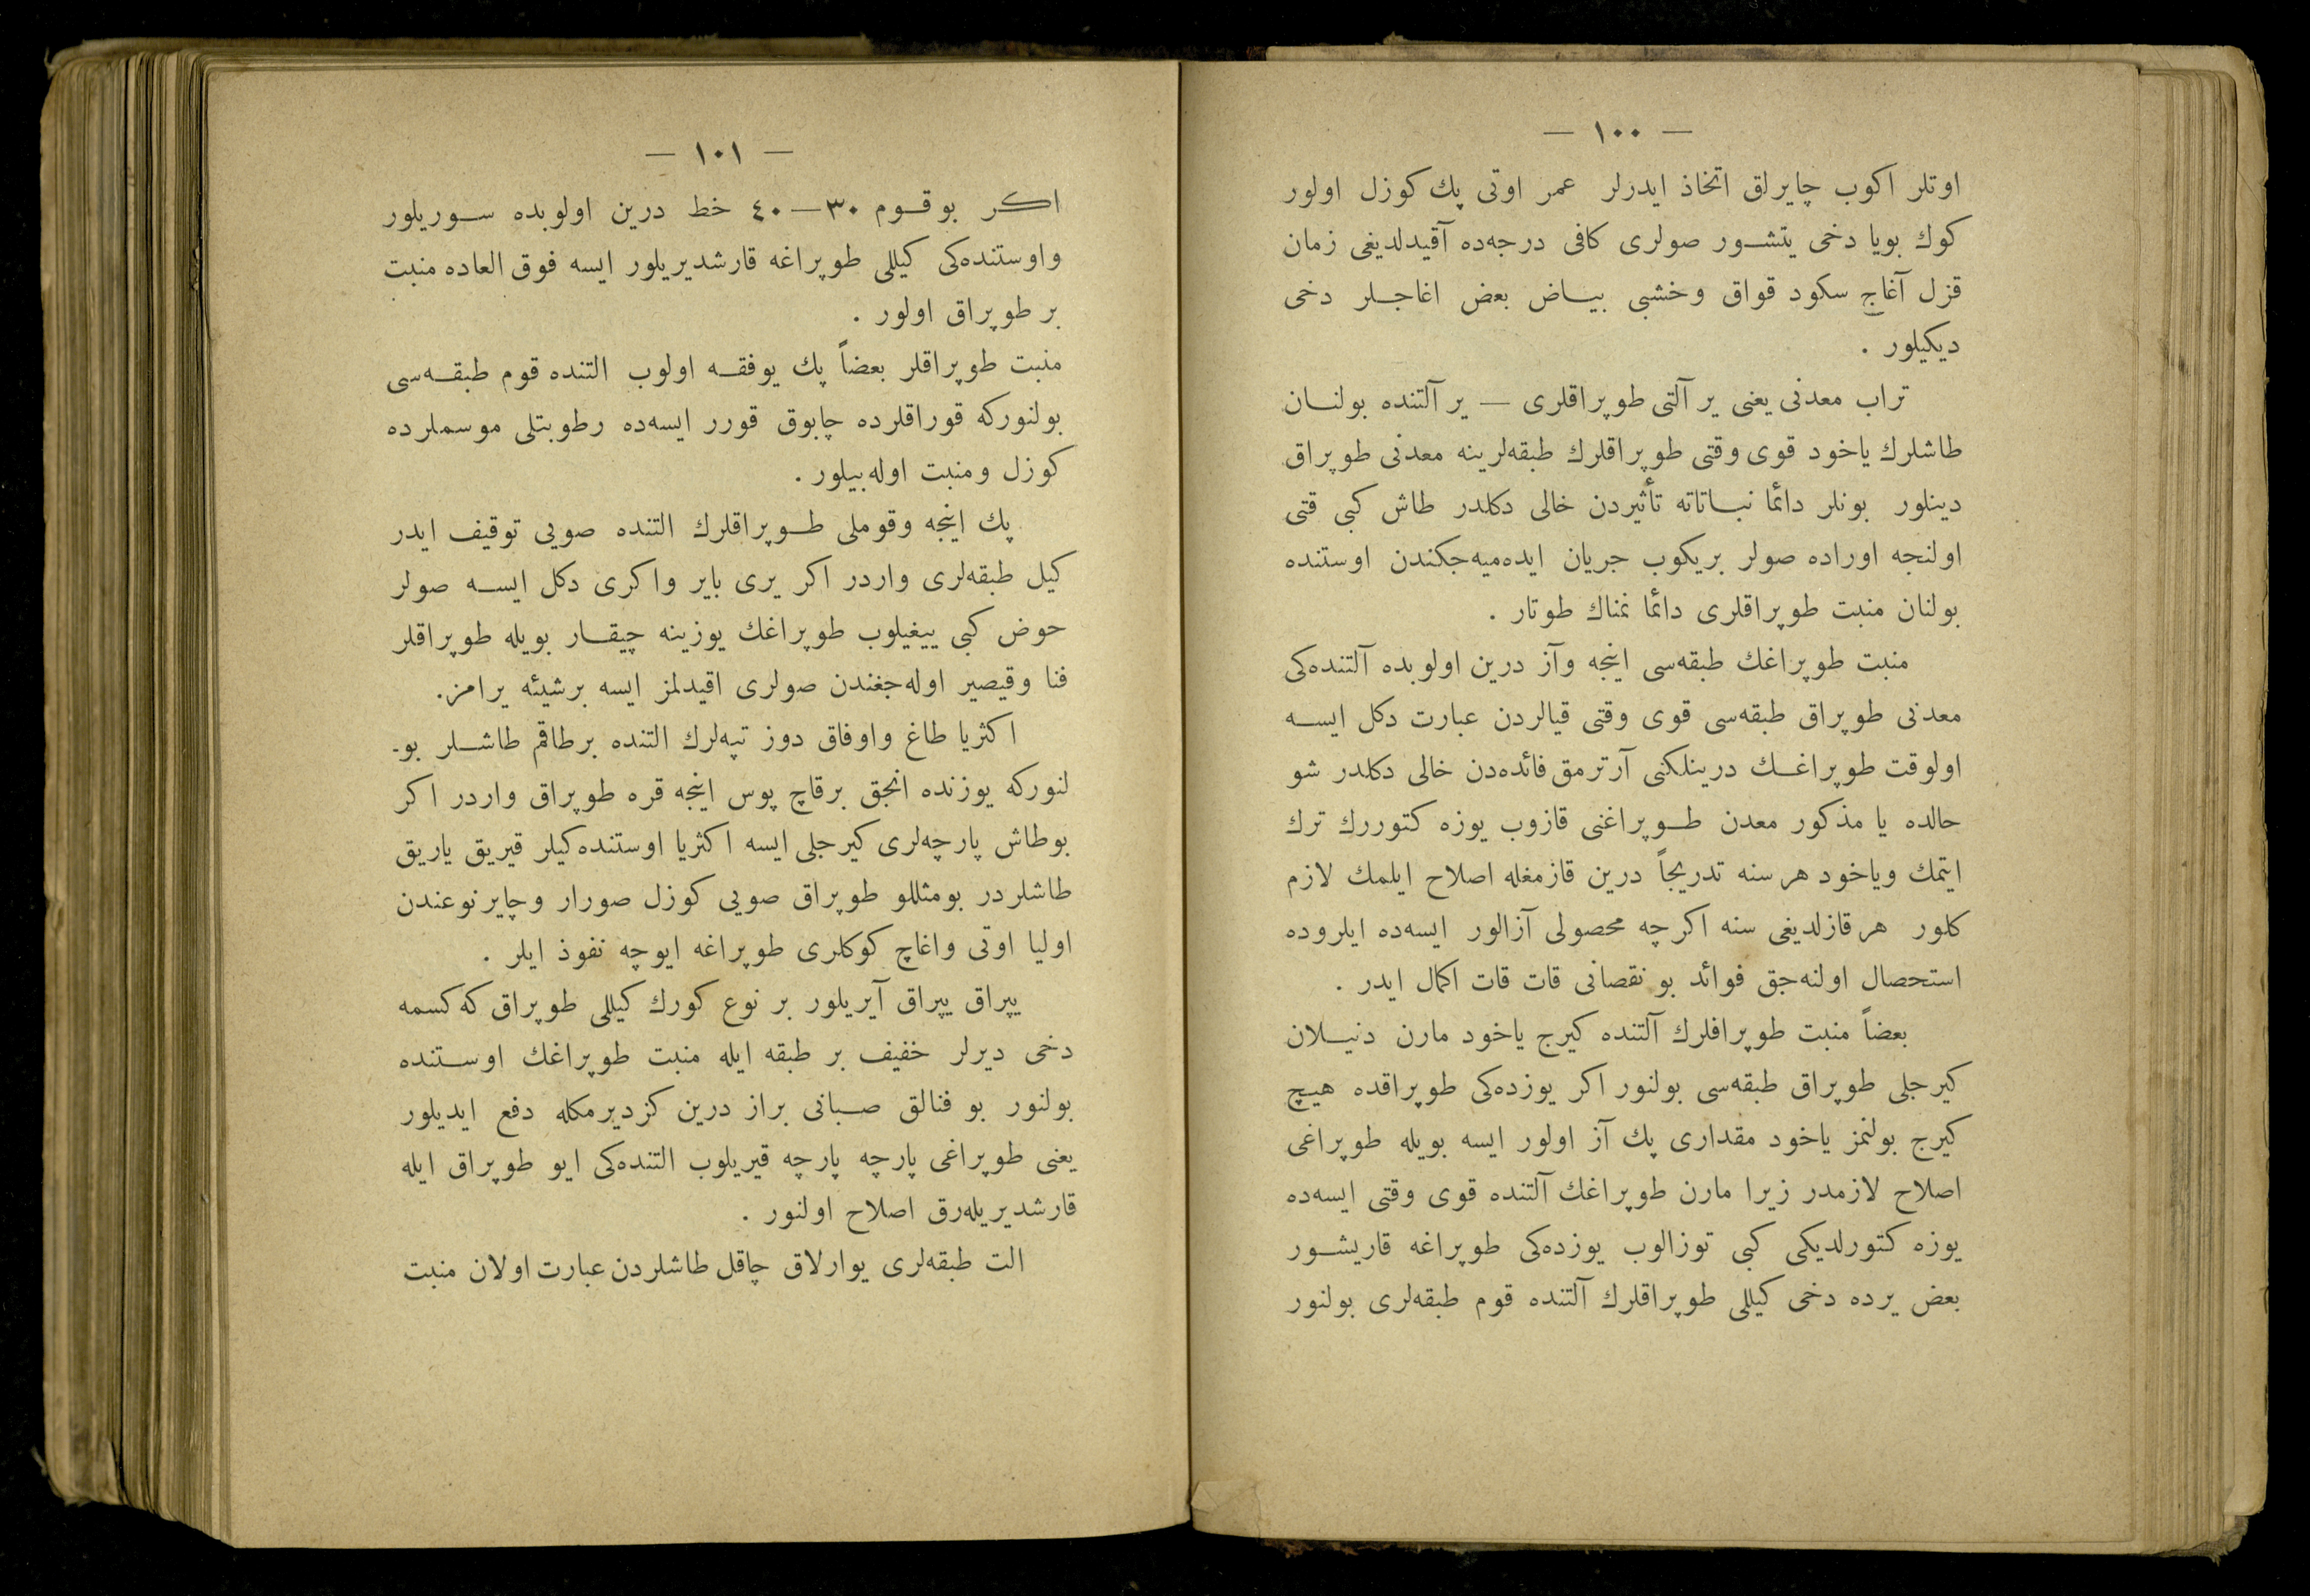 — ١٠٠ —
اوتلر اكوب چايرلق اتخاذ ايدرلر عمر اوتى پك كوزل اولور
كوك بويا دخى يتشور صولرى كافى درجه‌ده آقيدلديغى زمان
قزل آغاج سكود قواق وخشبى بياض بعض اغاجلر دخى
ديكيلور .
تراب معدنى يعنى ير آلتى طوپراقلرى — ير آلتنده بولنان
طاشلرك ياخود قوى وقتى طوپراقلرك طبقه‌لرينه معدنى طوپراق
دينلور بونلر دائما نباتاته تأثيردن خالى دكلدر طاش كبى قتى
اولنجه اوراده صولر بريكوب جريان ايده‌ميه‌جكندن اوستنده
بولنان منبت طوپراقلرى دائما نمناك طوتار .
منبت طوپراغك طبقه‌سى اينجه وآز درين اولوبده آلتنده‌كى
معدنى طوپراق طبقه‌سى قوى وقتى قيالردن عبارت دكل ايسه
اولوقت طوپراغك درينلكنى آرترمق فائده‌دن خالى دكلدر شو
حالده يا مذكور معدن طوپراغنى قازوب يوزه كتوررك ترك
ايتمك وياخود هر سنه تدريجاً درين قازمغله اصلاح ايلمك لازم
كلور هر قازلديغى سنه اكرچه محصولى آزالور ايسه‌ده ايلروده
استحصال اولنه‌جق فوائد بو نقصانى قات قات اكمال ايدر .
بعضاً منبت طوپرافلرك آلتنده كيرج ياخود مارن دنيلان
كيرجلى طوپراق طبقه‌سى بولنور اكر يوزده‌كى طوپراقده هيچ
كيرج بولنمز ياخود مقدارى پك آز اولور ايسه بويله طوپراغى
اصلاح لازمدر زيرا مارن طوپراغك آلتنده قوى وقتى ايسه‌ده
يوزه كتورلديكى كبى توزالوب يوزده‌كى طوپراغه قاريشور
بعض يرده دخى كيللى طوپراقلرك آلتنده قوم طبقه‌لرى بولنور
— ١٠١ —
اكر بو قوم ٣٠—٤٠ خط درين اولوبده سوريلور
واوستنده‌كى كيللى طوپراغه قارشديريلور ايسه فوق العاده منبت
بر طوپراق اولور .
منبت طوپراقلر بعضاً پك يوفقه اولوب التنده قوم طبقه‌سى
بولنوركه قوراقلرده چابوق قورر ايسه‌ده رطوبتلى موسملرده
كوزل ومنبت اوله‌بيلور .
پك اينجه وقوملى طوپراقلرك التنده صويى توقيف ايدر
كيل طبقه‌لرى واردر اكر يرى باير واكرى دكل ايسه صولر
حوض كبى ييغيلوب طوپراغك يوزينه چيقار بويله طوپراقلر
فنا وقيصير اوله‌جغندن صولرى اقيدلمز ايسه برشيئه يرامز.
اكثريا طاغ واوفاق دوز تپه‌لرك التنده برطاقم طاشلر بو-
لنوركه يوزنده انجق برقاچ پوس اينجه قره طوپراق واردر اكر
بوطاش پارچه‌لرى كيرجلى ايسه اكثريا اوستنده‌كيلر قيريق ياريق
طاشلردر بومثللو طوپراق صويى كوزل صورار وچاير نوعندن
اوليا اوتى واغاچ كوكلرى طوپراغه ايوجه نفوذ ايلر .
يپراق يپراق آيريلور بر نوع كورك كيللى طوپراق كه كسمه
دخى ديرلر خفيف بر طبقه ايله منبت طوپراغك اوستنده
بولنور بو فنالق صبانى براز درين كزديرمكله دفع ايديلور
يعنى طوپراغى پارچه پارچه قيريلوب التنده‌كى ايو طوپراق ايله
قارشديريله‌رق اصلاح اولنور .
الت طبقه‌لرى يوارلاق چاقل طاشلردن عبارت اولان منبت